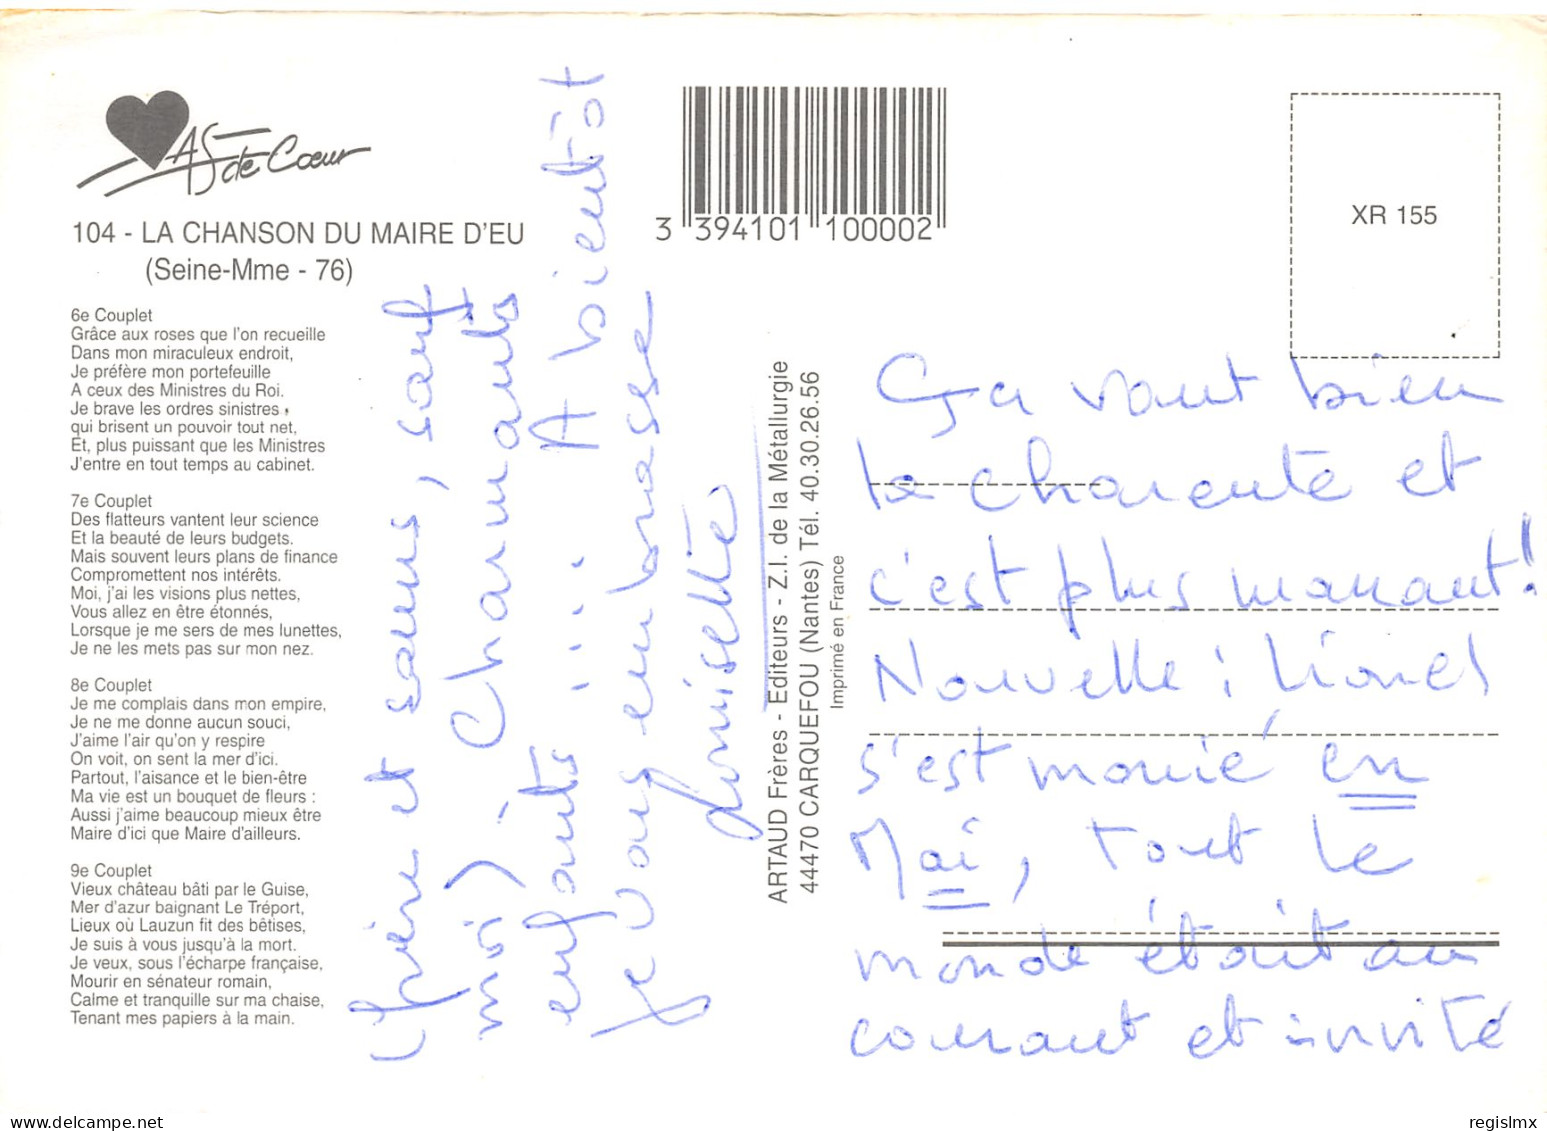 As de Cœur
104 - LA CHANSON DU MAIRE D'EU
(Seine-Mme - 76)
6e Couplet
Grâce aux roses que l'on recueille
Dans mon miraculeux endroit,
Je préfère mon portefeuille
A ceux des Ministres du Roi.
Je brave les ordres sinistres,
qui brisent un pouvoir tout net,
Et, plus puissant que les Ministres
J'entre en tout temps au cabinet.
7e Couplet
Des flatteurs vantent leur science
Et la beauté de leurs budgets.
Mais souvent leurs plans de finance
Compromettent nos intérêts.
Moi, j'ai les visions plus nettes,
Vous allez en être étonnés,
Lorsque je me sers de mes lunettes,
Je ne les mets pas sur mon nez.
8e Couplet
Je me complais dans mon empire,
Je ne me donne aucun souci,
J'aime l'air qu'on y respire
On voit, on sent la mer d'ici.
Partout, l'aisance et le bien-être
Ma vie est un bouquet de fleurs :
Aussi j'aime beaucoup mieux être
Maire d'ici que Maire d'ailleurs.
9e Couplet
Vieux château bâti par le Guise,
Mer d'azur baignant Le Tréport,
Lieux où Lauzun fit des bêtises,
Je suis à vous jusqu'à la mort.
Je veux, sous l'écharpe française,
Mourir en sénateur romain,
Calme et tranquille sur ma chaise,
Tenant mes papiers à la main.
3 394101 100002
XR 155
ARTAUD Frères - Editeurs - Z.I. de la Métallurgie
44470 CARQUEFOU (Nantes) Tél. 40.30.26.56
Imprimé en France
Ça vaut bien
la charente et
c'est plus marrant!
Nouvelle : Lionel
s'est marié en
Mai, tout le
monde était au
courant et invité
(frère et sœurs, sauf
moi) Charmants
enfants .... A bientôt
je vous embrasse
Louisette
regislmx